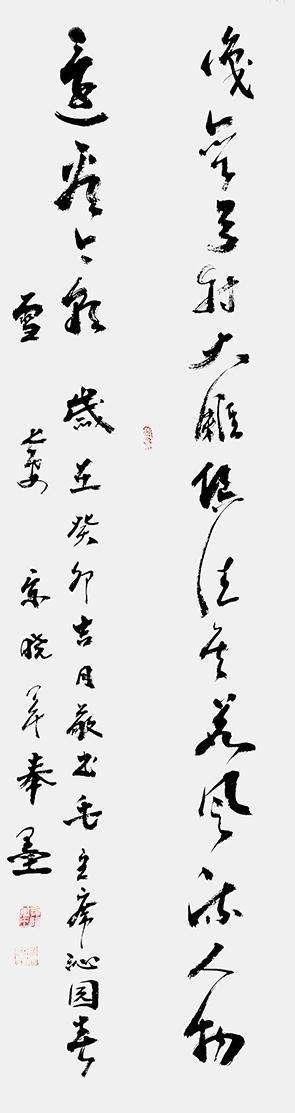 识弯弓射大雕俱往矣数风流人物
还看今朝 歲在癸卯吉月敬书毛主席沁园春
雪 晓军奉墨